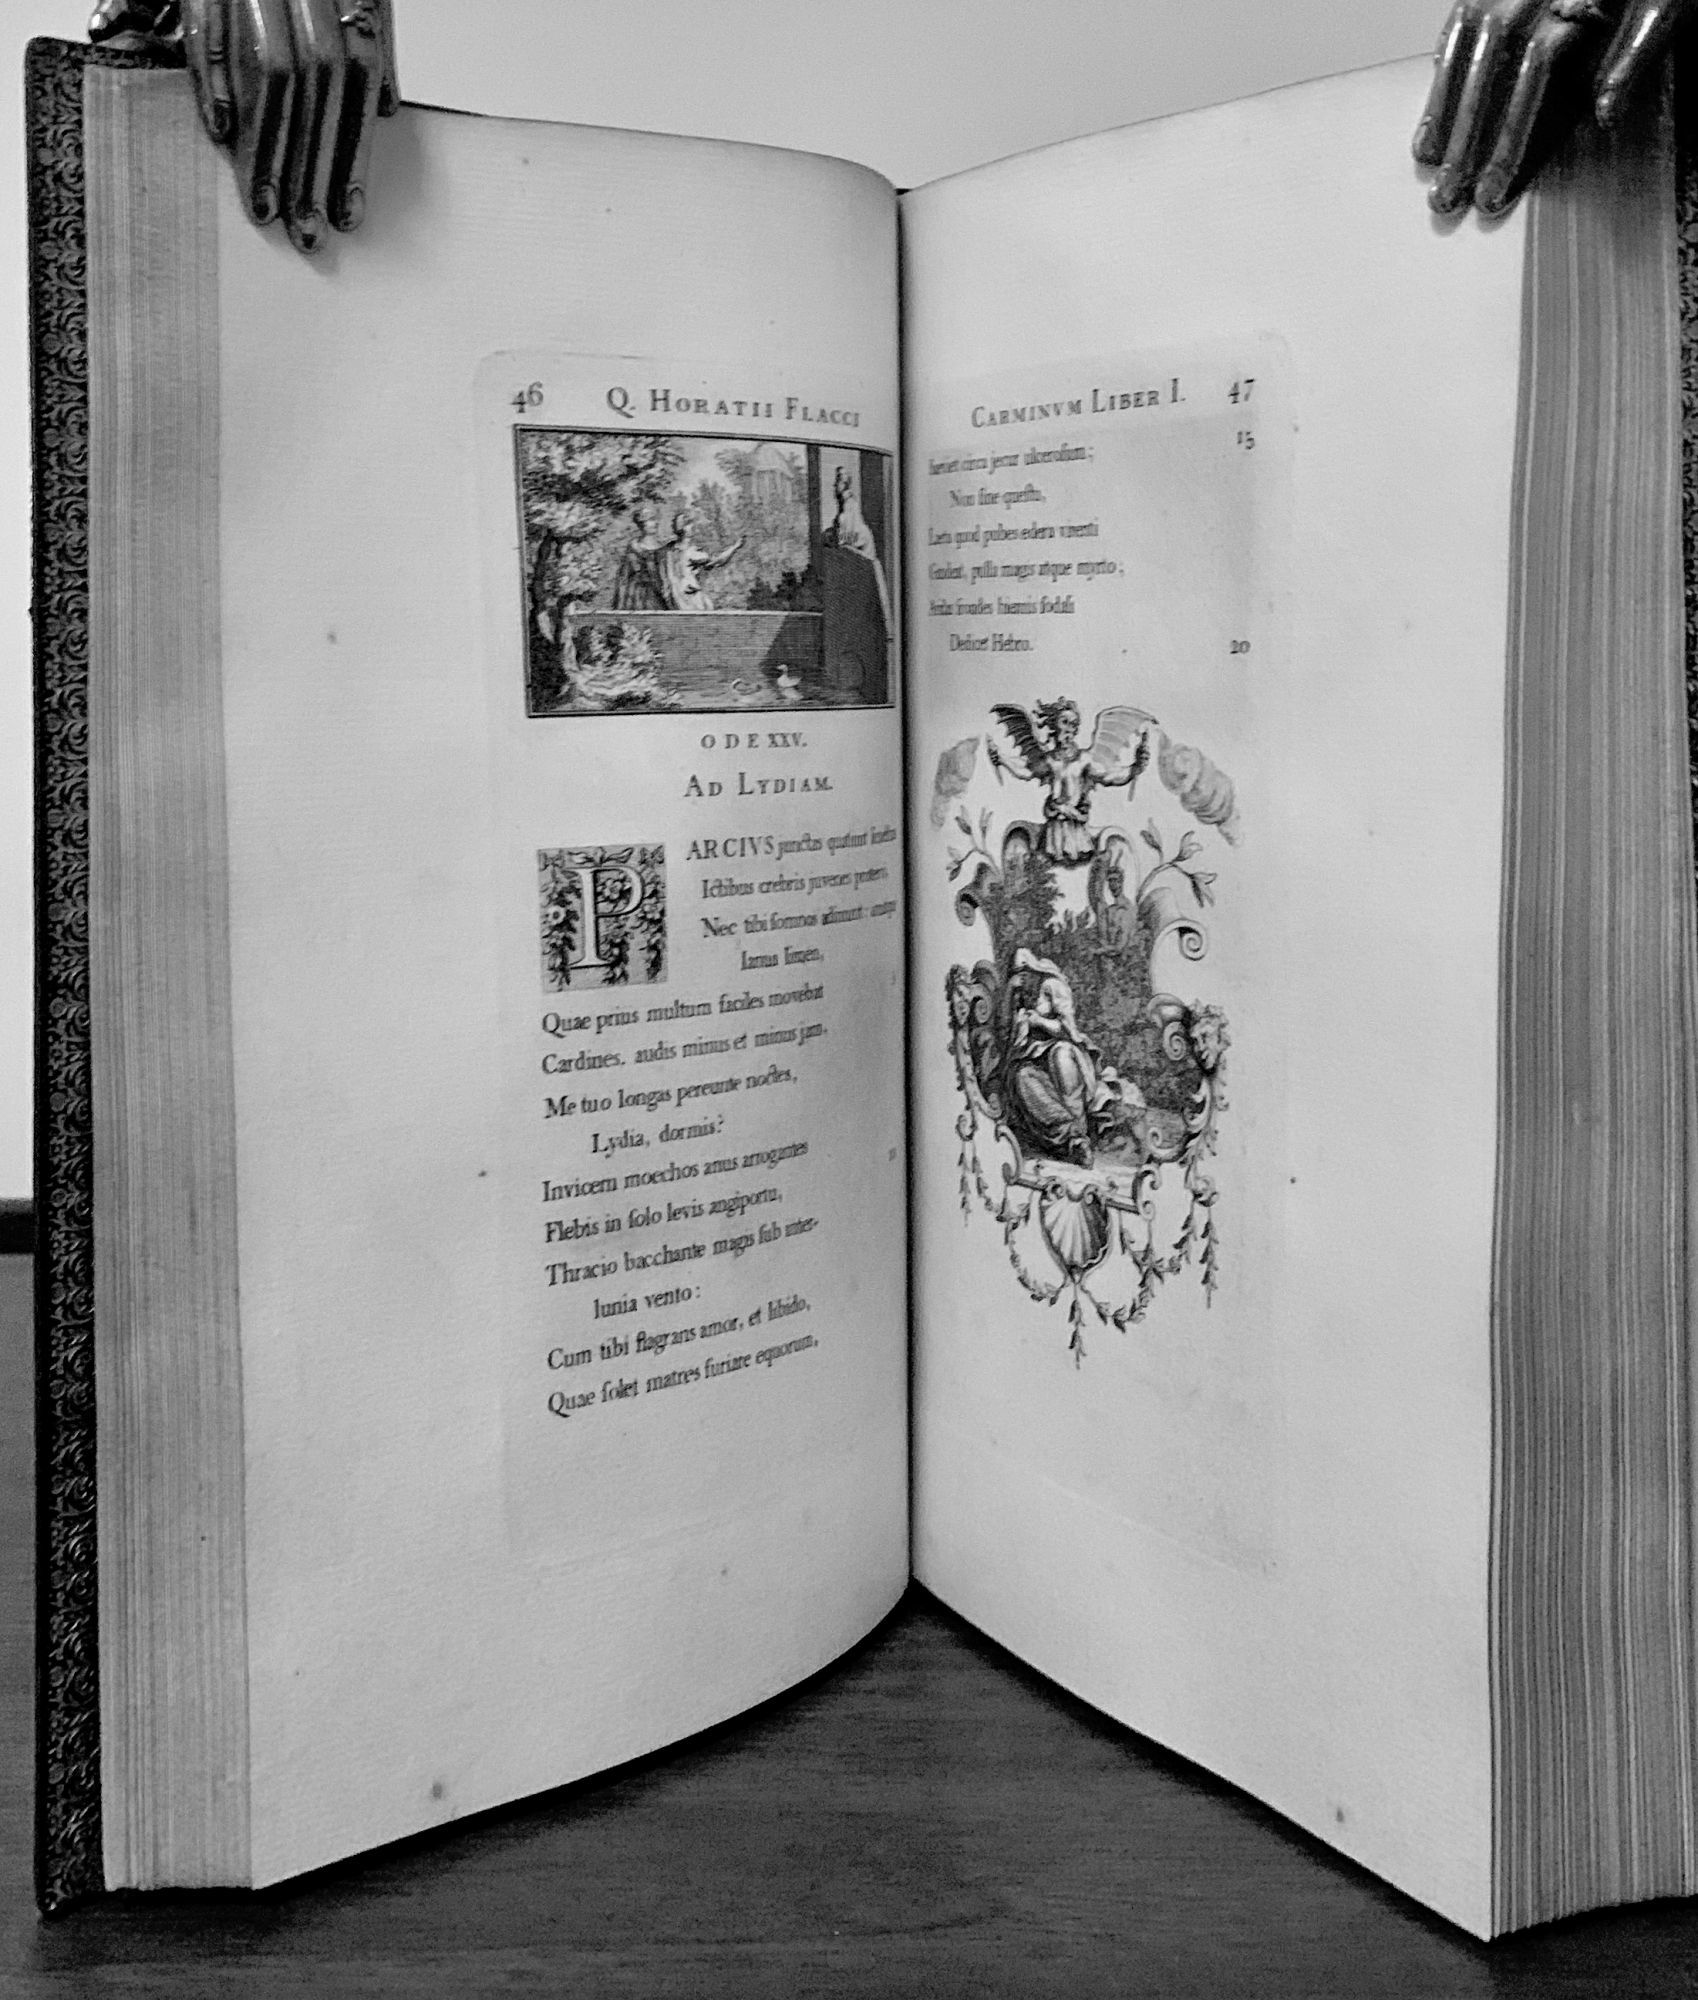 46 Q. HORATII FLACCI
ODE XXV.
AD LYDIAM.
PARCIVS junctas quatiunt fenestras
Ictibus crebris juvenes protervi,
Nec tibi ſomnos adimunt: amatque
Ianua limen,
5
Quae prius multum faciles movebat
Cardines. audis minus et minus jam,
Me tuo longas pereunte noctes,
Lydia, dormis?
Invicem moechos anus arrogantes
10
Flebis in ſolo levis angiportu,
Thracio bacchante magis ſub inter-
lunia vento:
Cum tibi flagrans amor, et libido,
Quae ſolet matres furiare equorum,
CARMINVM LIBER I. 47
Saeviet circa jecur ulceroſum; 15
Non ſine queſtu,
Laeta quod pubes edera virenti
Gaudeat, pulla magis atque myrto;
Aridas frondes hiemis ſodali
Dedicet Hebro. 20